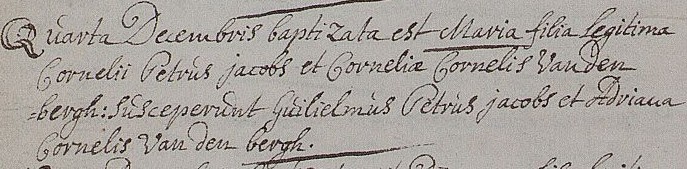 Quarta Decembris baptizata est Maria filia legitima
Cornelii Petrus jacobs et Corneliæ Cornelis Van den
bergh: susceperunt Guilielmus Petrus jacobs et Adriana
Cornelis Van den bergh.